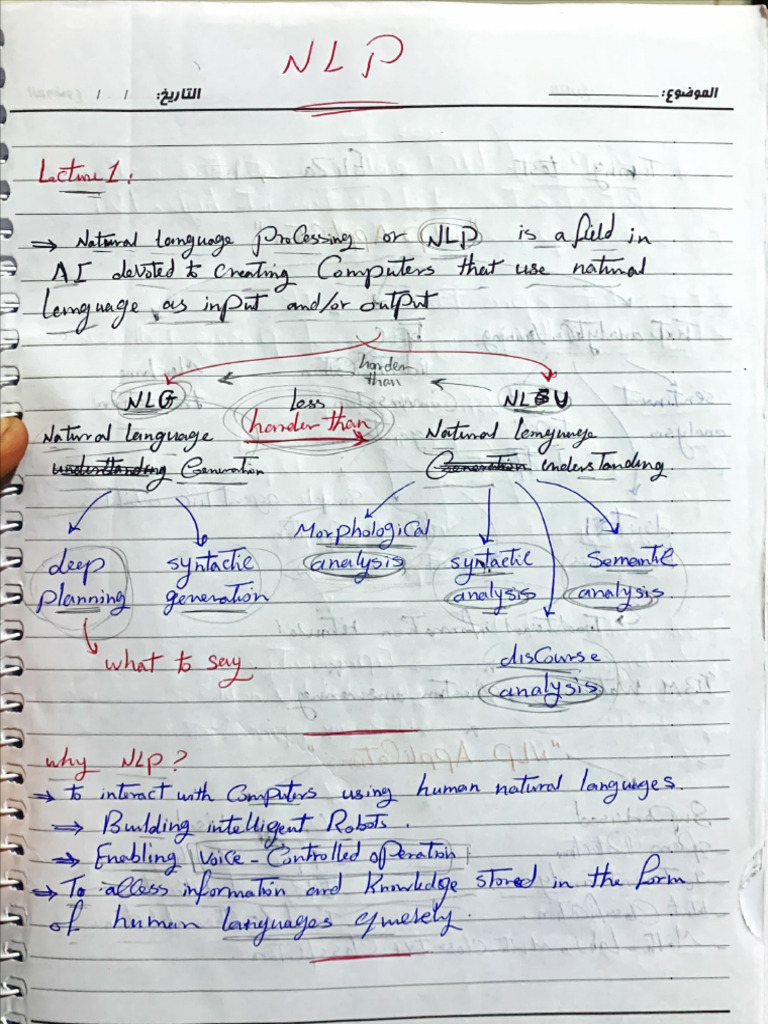 NLP
الموضوع:
التاريخ: / /
Lecture 1:
⇒ Natural language processing or NLP is a field in
AI devoted to creating Computers that use natural
language as input and/or output
harder
than
NLG
less
harder than
NLU
Natural language
Natural language
understanding Generation
Generation understanding
Morphological
analysis
deep
planning
syntactic
generation
syntactic
analysis
Semantic
analysis
what to say
disCourse
analysis
why NLP?
→ to interact with Computers using human natural languages.
⇒ Building intelligent Robots.
⇒ Enabling voice-Controlled operation
→ To access information and knowledge stored in the form
of human languages